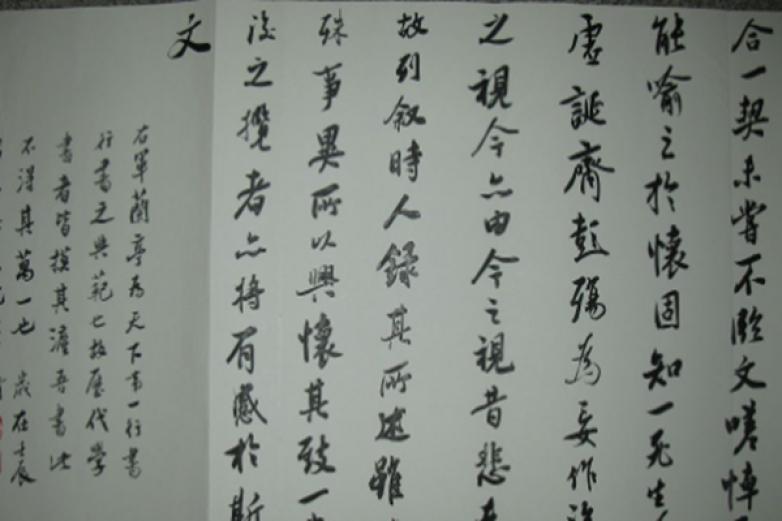 合一契未嘗不臨文嗟悼
能喻之於懷固知一死生
虛誕齊彭殤為妄作
之視今亦由今之視昔悲
故列敘時人錄其所述雖
殊事異所以興懷其致一
後之攬者亦將有感於斯
文
右軍蘭亭為天下第一行書
行書之典範也故歷代學
書者皆摸其
吾書此
不得其萬一也 歲在壬辰